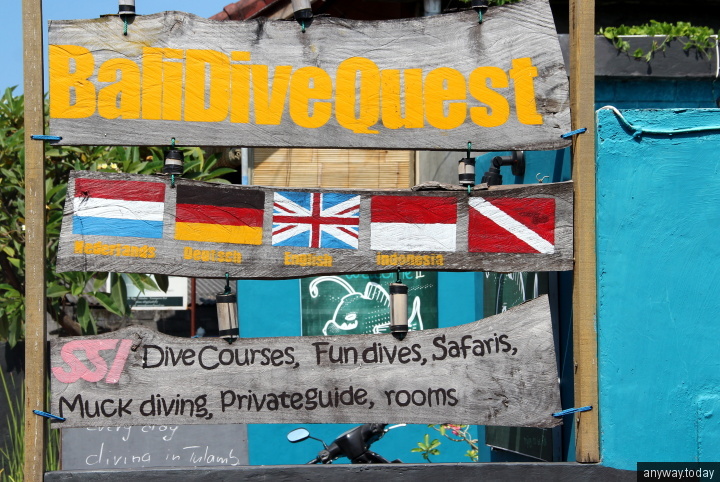 BaliDiveQuest
Nederlands Deutsch English Indonesia
SSI Dive Courses, Fun dives, Safaris,
Muck diving, Private guide, rooms
every day
diving in Tulamb
anyway.today